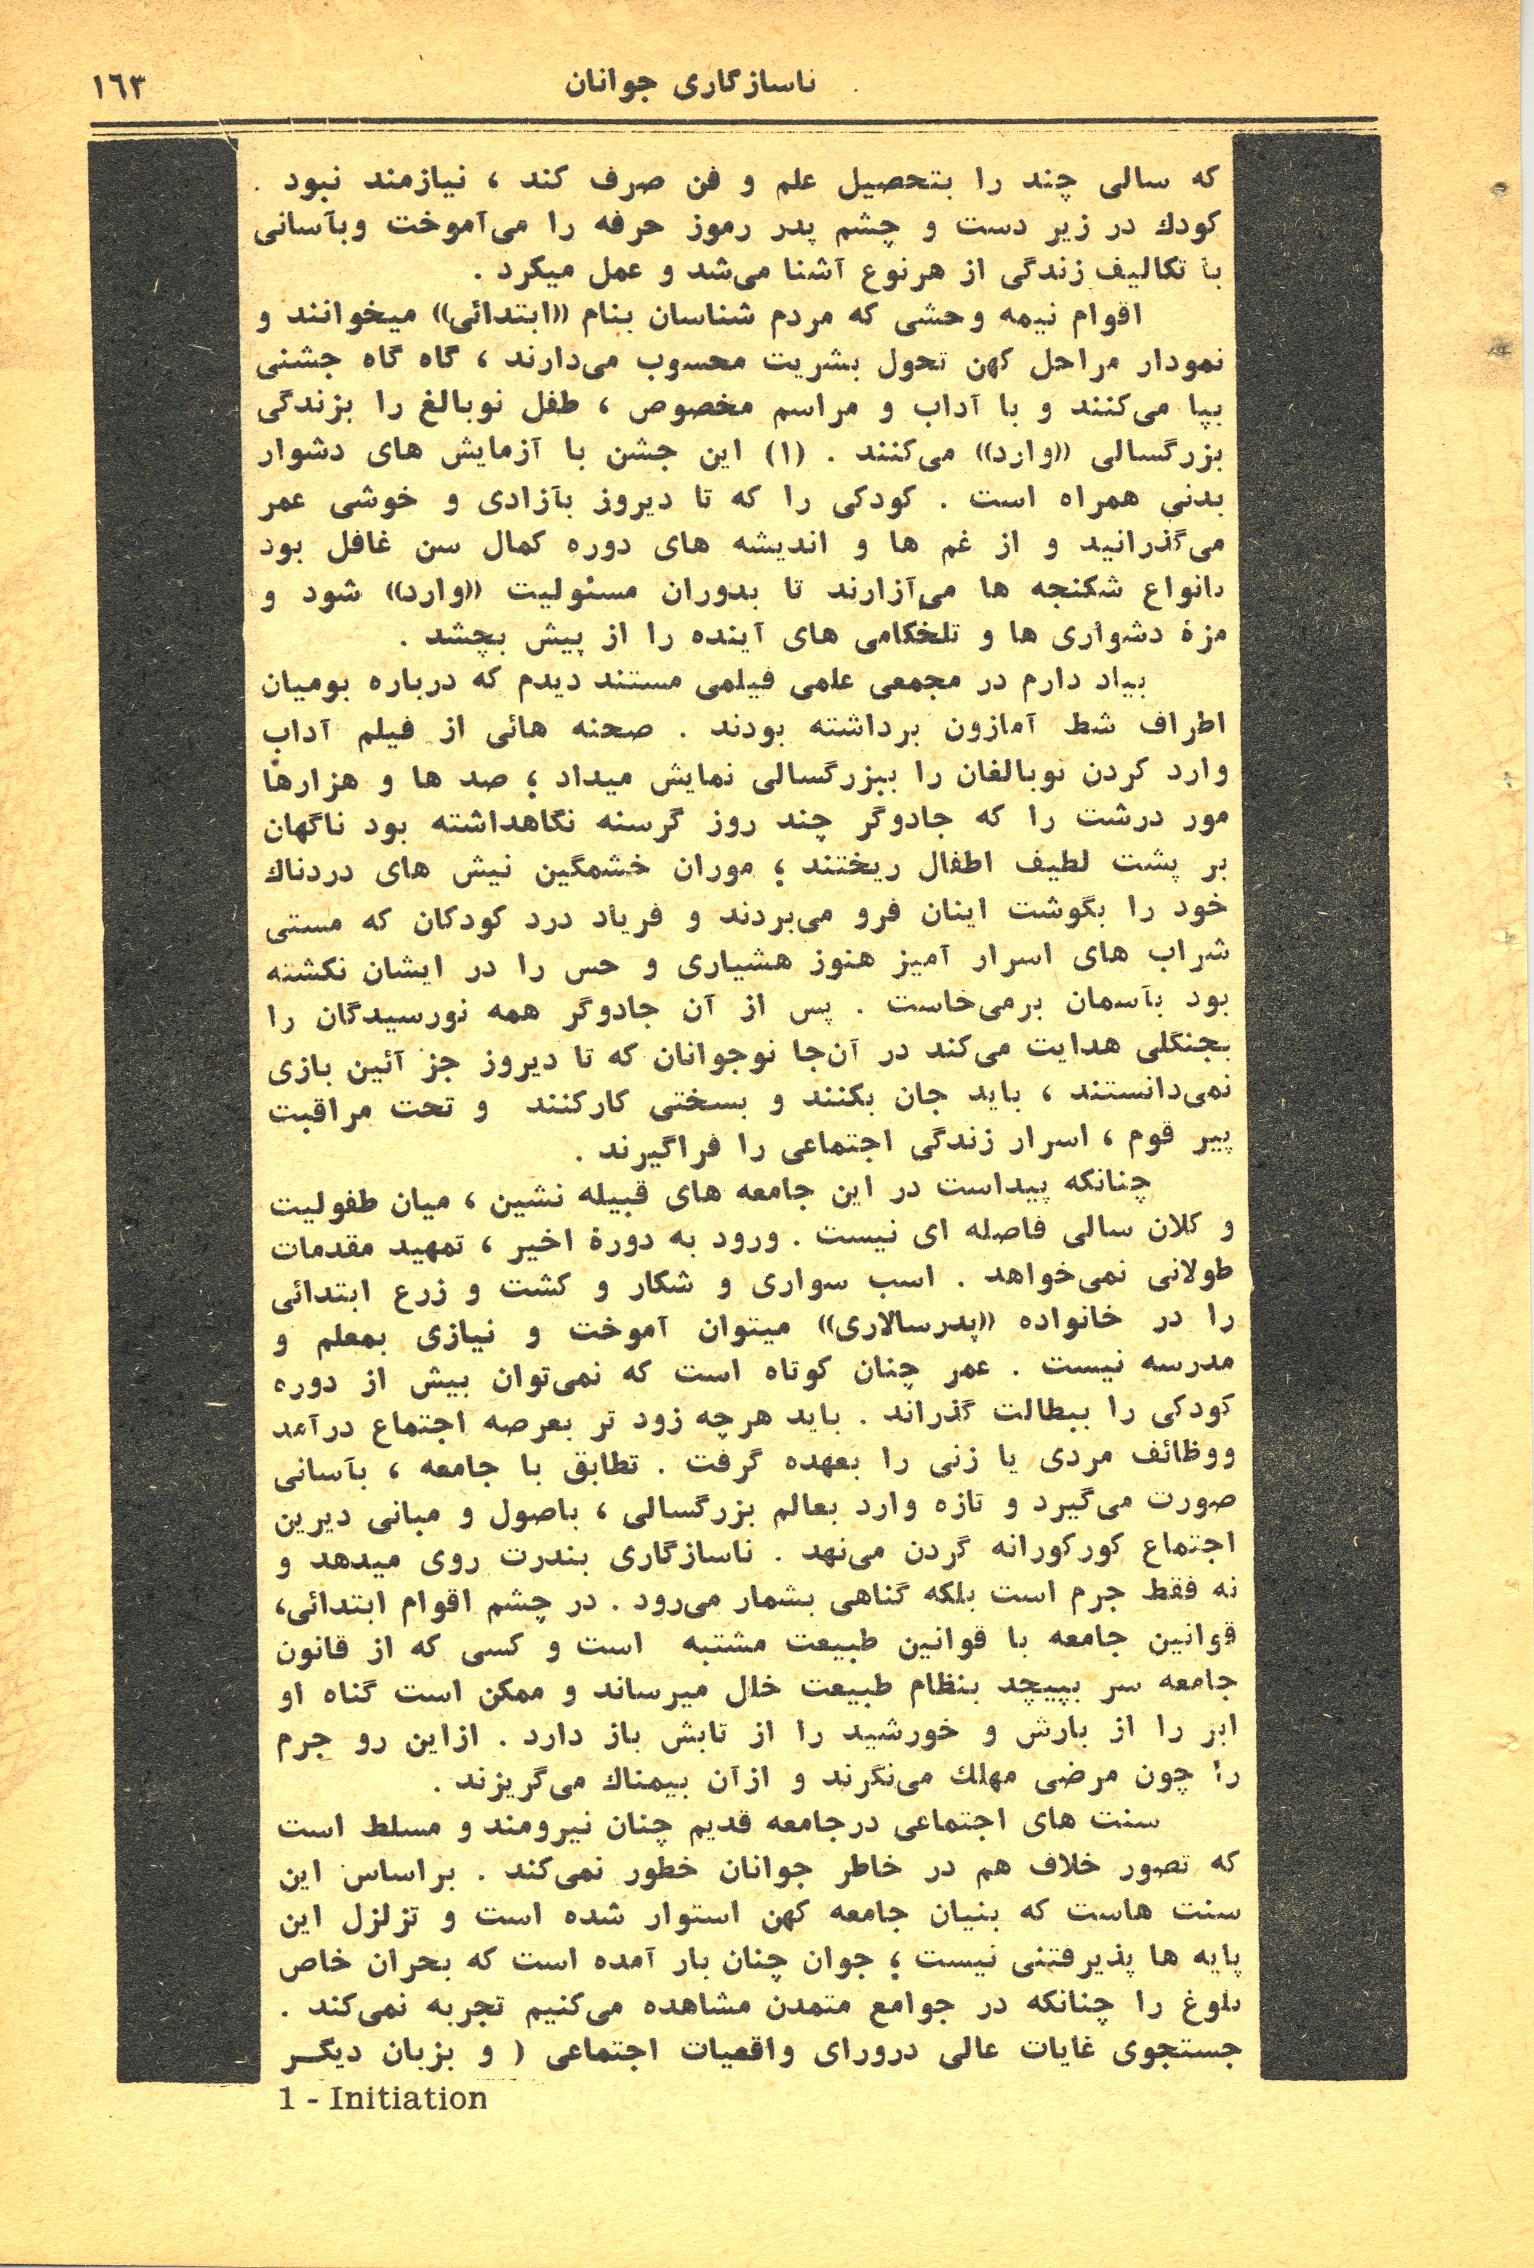 ناسازگاری جوانان
۱٦۳
که سالی چند را بتحصیل علم و فن صرف کند ، نیازمند نبود .
کودك در زیر دست و چشم پدر رموز حرفه را می‌آموخت وبآسانی
با تکالیف زندگی از هرنوع آشنا می‌شد و عمل میکرد .
اقوام نیمه وحشی که مردم شناسان بنام «ابتدائی» میخوانند و
نمودار مراحل کهن تحول بشریت محسوب می‌دارند ، گاه گاه جشنی
بپا می‌کنند و با آداب و مراسم مخصوص ، طفل نوبالغ را بزندگی
بزرگسالی «وارد» می‌کنند . (۱) این جشن با آزمایش های دشوار
بدنی همراه است . کودکی را که تا دیروز بآزادی و خوشی عمر
می‌گذرانید و از غم ها و اندیشه های دوره کمال سن غافل بود
بانواع شکنجه ها می‌آزارند تا بدوران مسئولیت «وارد» شود و
مزهٔ دشواری ها و تلخکامی های آینده را از پیش بچشد .
بیاد دارم در مجمعی علمی فیلمی مستند دیدم که درباره بومیان
اطراف شط آمازون برداشته بودند . صحنه هائی از فیلم آداب
وارد کردن نوبالغان را ببزرگسالی نمایش میداد ؛ صد ها و هزارها
مور درشت را که جادوگر چند روز گرسنه نگاهداشته بود ناگهان
بر پشت لطیف اطفال ریختند ؛ موران خشمگین نیش های دردناك
خود را بگوشت اینان فرو می‌بردند و فریاد درد کودکان که مستی
شراب های اسرار آمیز هنوز هشیاری و حس را در ایشان نکشته
بود بآسمان برمی‌خاست . پس از آن جادوگر همه نورسیدگان را
بجنگلی هدایت می‌کند در آن‌جا نوجوانان که تا دیروز جز آئین بازی
نمی‌دانستند ، باید جان بکنند و بسختی کارکنند و تحت مراقبت
پیر قوم ، اسرار زندگی اجتماعی را فراگیرند .
چنانکه پیداست در این جامعه های قبیله نشین ، میان طفولیت
و کلان سالی فاصله ای نیست . ورود به دورهٔ اخیر ، تمهید مقدمات
طولانی نمی‌خواهد . اسب سواری و شکار و کشت و زرع ابتدائی
را در خانواده «پدرسالاری» میتوان آموخت و نیازی بمعلم و
مدرسه نیست . عمر چنان کوتاه است که نمی‌توان بیش از دوره
کودکی را ببطالت گذراند . باید هرچه زود تر بعرصه اجتماع درآمد
ووظائف مردی یا زنی را بعهده گرفت . تطابق با جامعه ، بآسانی
صورت می‌گیرد و تازه وارد بعالم بزرگسالی ، باصول و مبانی دیرین
اجتماع کورکورانه گردن می‌نهد . ناسازگاری بندرت روی میدهد و
نه فقط جرم است بلکه گناهی بشمار می‌رود . در چشم اقوام ابتدائی،
قوانین جامعه با قوانین طبیعت مشتبه است و کسی که از قانون
جامعه سر بپیچد بنظام طبیعت خلل میرساند و ممکن است گناه او
ابر را از بارش و خورشید را از تابش باز دارد . ازاین رو جرم
را چون مرضی مهلك می‌نگرند و ازآن بیمناك می‌گریزند .
سنت های اجتماعی درجامعه قدیم چنان نیرومند و مسلط است
که تصور خلاف هم در خاطر جوانان خطور نمی‌کند . براساس این
سنت هاست که بنیان جامعه کهن استوار شده است و تزلزل این
پایه ها پذیرفتنی نیست ؛ جوان چنان بار آمده است که بحران خاص
بلوغ را چنانکه در جوامع متمدن مشاهده می‌کنیم تجربه نمی‌کند .
جستجوی غایات عالی درورای واقعیات اجتماعی ( و بزبان دیگر
1 - Initiation